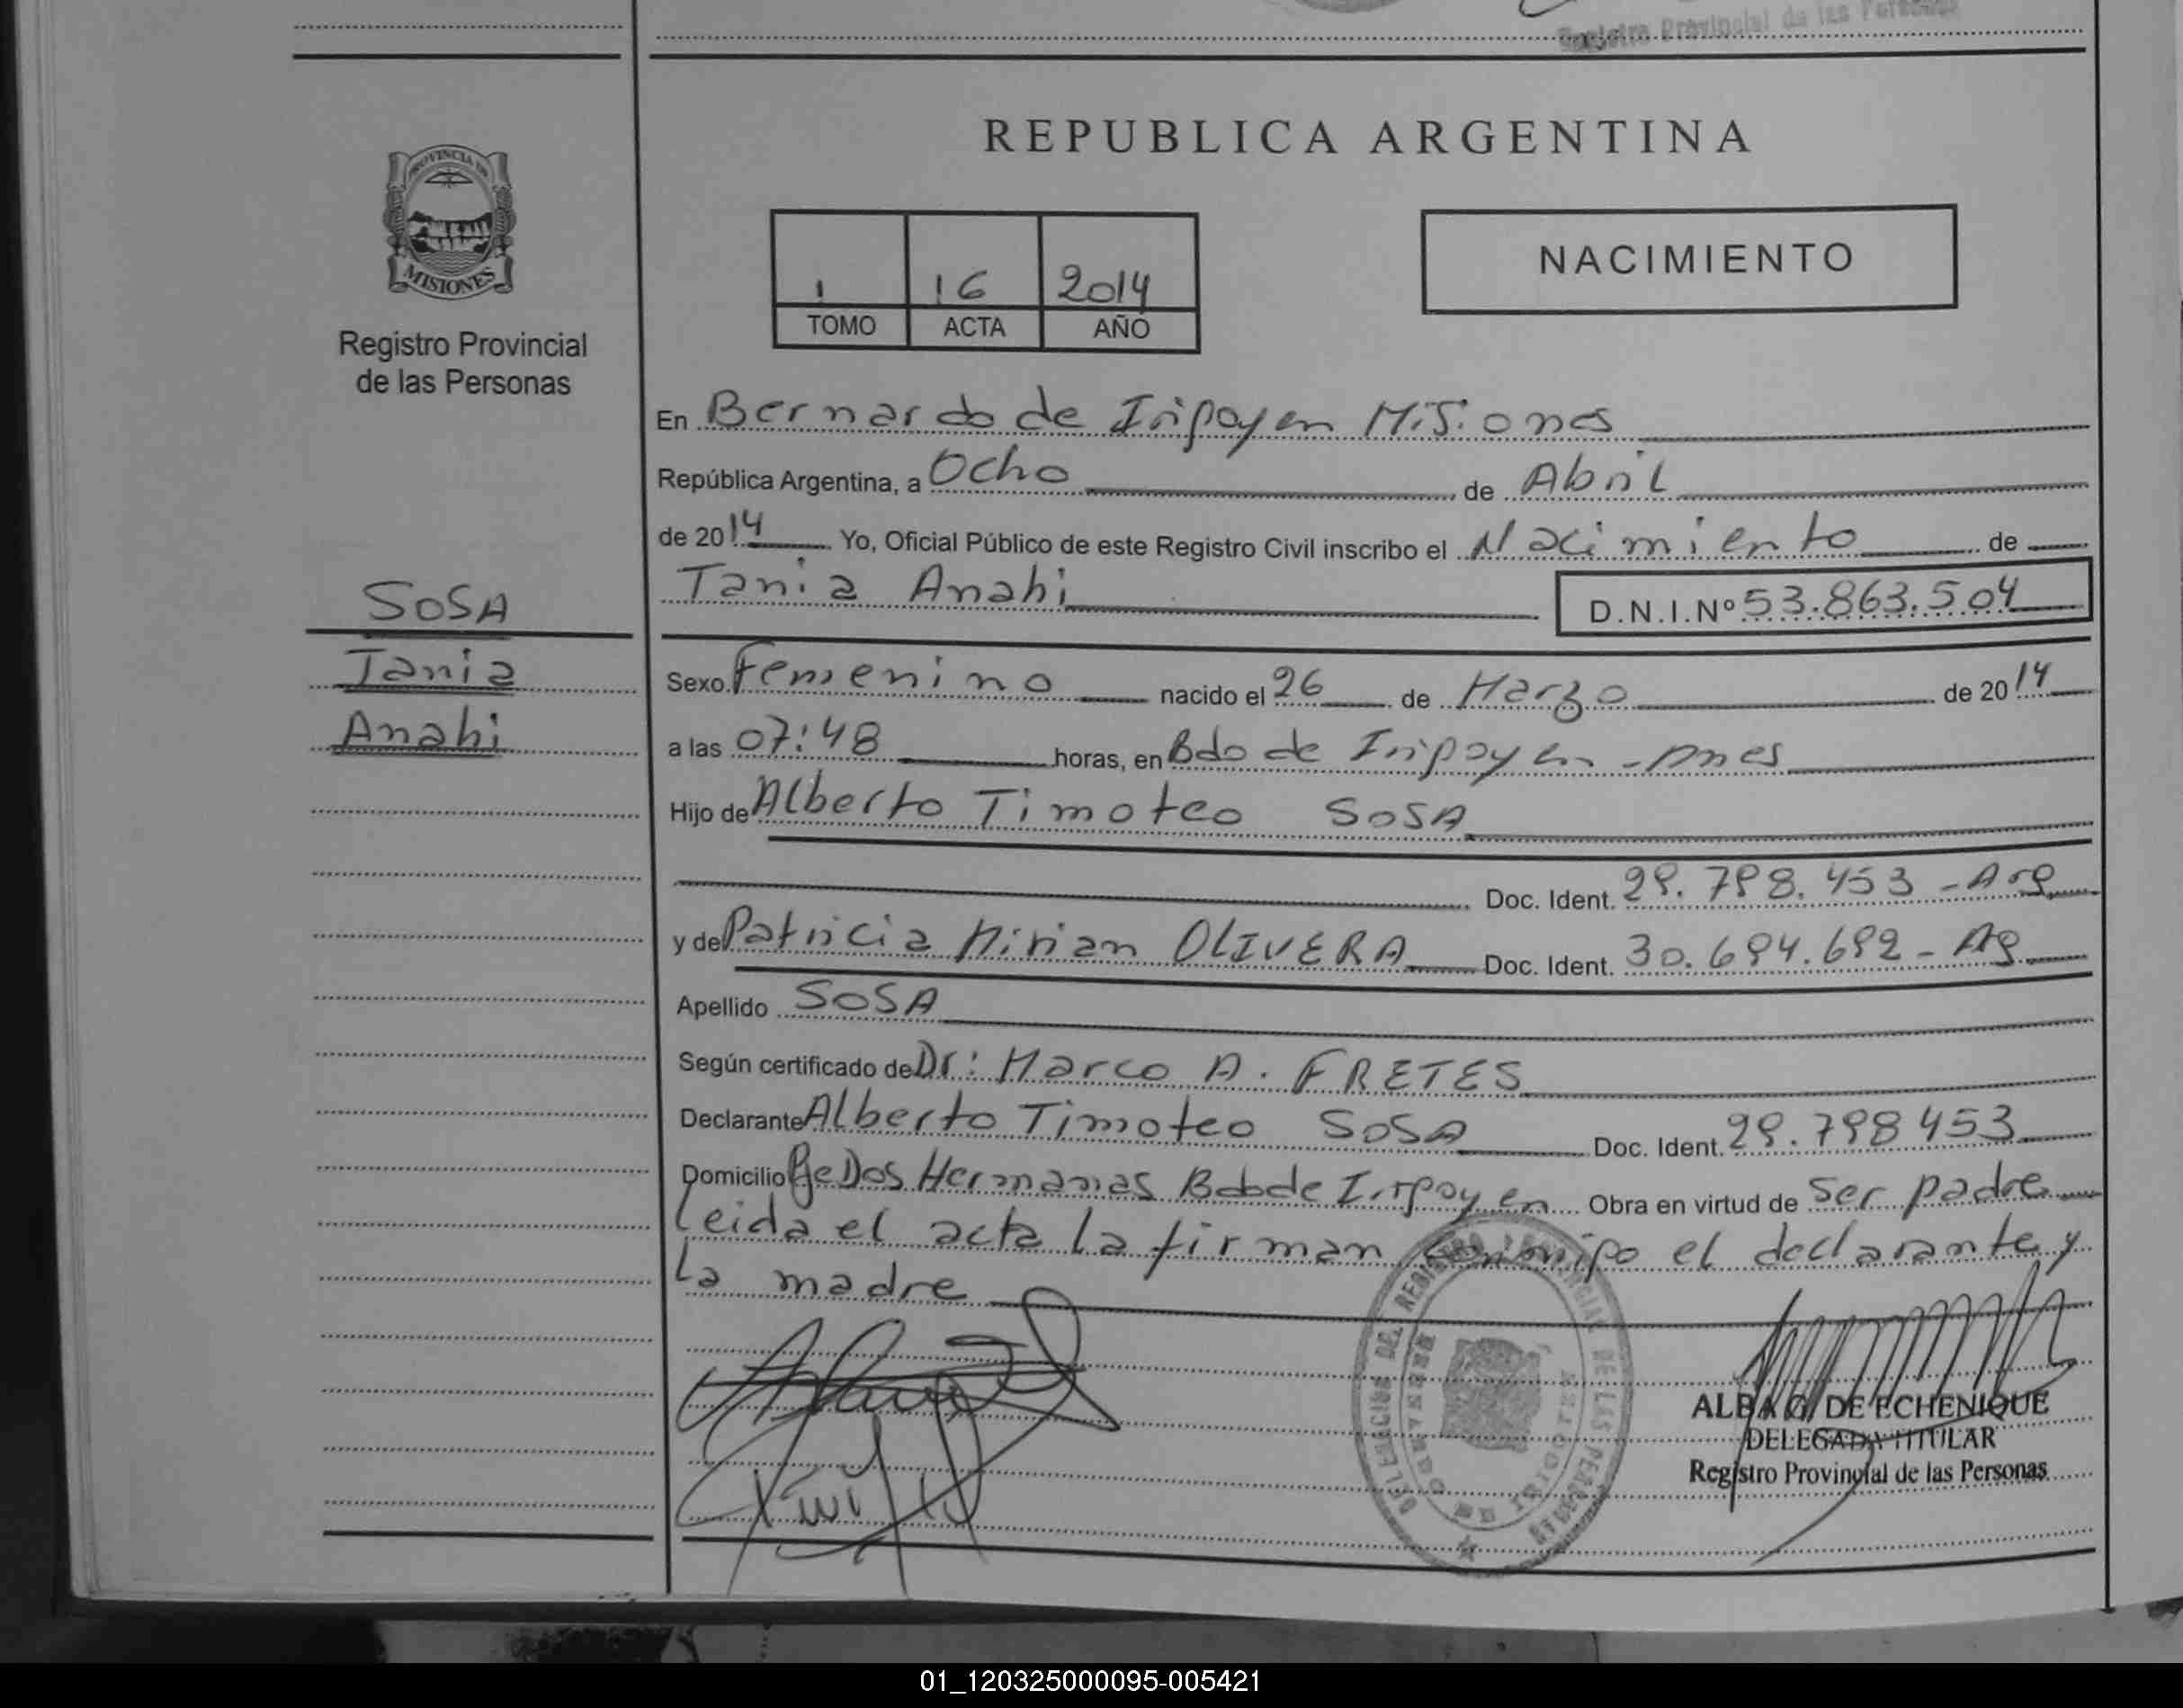 Registro Provincial de las Personas
REPUBLICA ARGENTINA
PROVINCIA DE
MISIONES
Registro Provincial
de las Personas
1 16 2014
TOMO ACTA AÑO
NACIMIENTO
En Bernardo de Irigoyen Misiones
República Argentina, a Ocho de Abril
de 2014 Yo, Oficial Público de este Registro Civil inscribo el Nacimiento de
Tania Anahi D.N.I.Nº 53.863.504
SOSA
Tania
Anahi
Sexo Femenino nacido el 26 de Marzo de 2014
a las 07:48 horas, en Bdo de Irigoyen - Mnes
Hijo de Alberto Timoteo SOSA
Doc. Ident. 29.798.453 - Arg
y de Patricia Mirian OLIVERA Doc. Ident. 30.694.692 - Ag
Apellido SOSA
Según certificado de Dr: Marco A. FRETES
Declarante Alberto Timoteo SOSA Doc. Ident. 29.798 453
Domicilio Dos Hermanas Bdo de Irigoyen Obra en virtud de Ser padre
Leida el acta la firman conmigo el declarante y
la madre
DELEGACION DEL REGISTRO PROVINCIAL DE LAS PERSONAS
BERNARDO DE IRIGOYEN
ALBA G. DE ECHENIQUE
DELEGADA TITULAR
Registro Provincial de las Personas
01_120325000095-005421